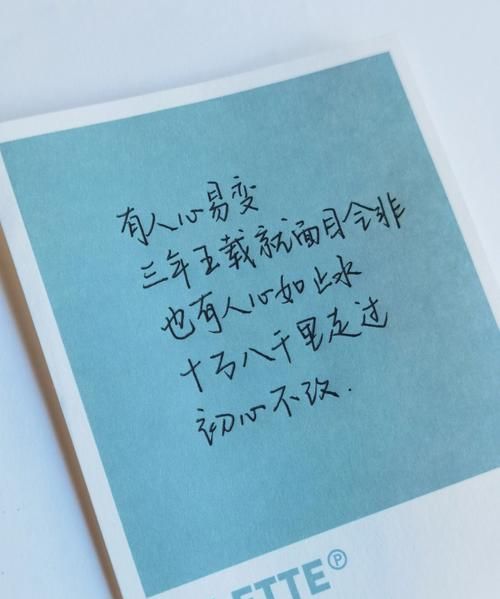 有人心易变
三年五载就面目全非
也有人心如止水
十万八千里走过
初心不改.
ETTE℗